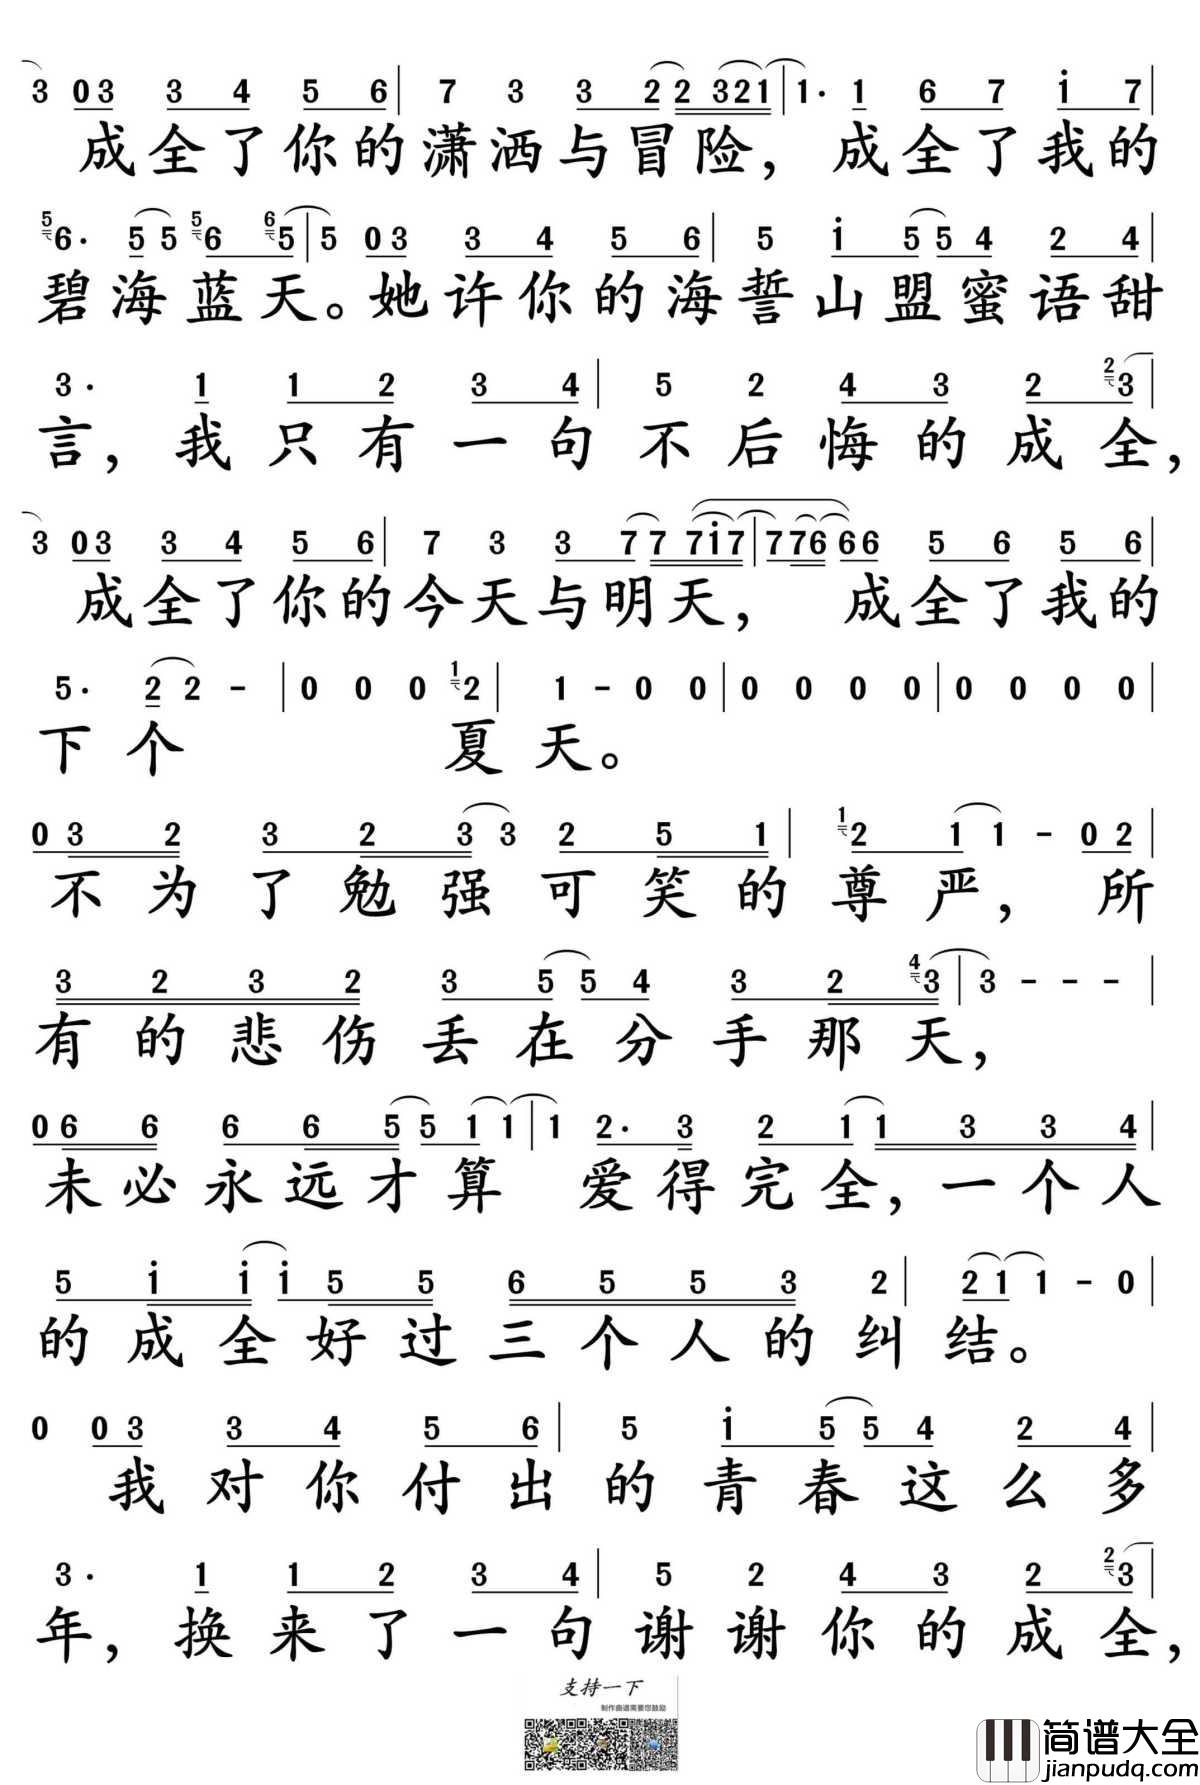 3 03 3 4 5 6 | 7 3 3 2 2 321 | 1· 1 6 7 i 7 |
成全了你的潇洒与冒险，成全了我的
5 6· 5 5 5 6 6 5 | 5 03 3 4 5 6 | 5 i 5 5 4 2 4 |
碧海蓝天。她许你的海誓山盟蜜语甜
3· 1 1 2 3 4 | 5 2 4 3 2 2 3 |
言，我只有一句不后悔的成全，
3 03 3 4 5 6 | 7 3 3 7 7 7i7 | 776 66 5 6 5 6 |
成全了你的今天与明天，成全了我的
5· 2 2 - | 0 0 0 1 2 | 1 - 0 0 | 0 0 0 0 | 0 0 0 0 |
下个夏天。
0 3 2 3 2 3 3 2 5 1 | 1 2 1 1 - 0 2 |
不为了勉强可笑的尊严，所
3 2 3 2 3 5 5 4 3 2 4 3 | 3 - - - |
有的悲伤丢在分手那天，
0 6 6 6 6 5 5 1 1 | 1 2· 3 2 1 1 3 3 4 |
未必永远才算爱得完全，一个人
5 i i i 5 5 6 5 5 3 2 | 2 1 1 - 0 |
的成全好过三个人的纠结。
0 0 3 3 4 5 6 | 5 i 5 5 4 2 4 |
我对你付出的青春这么多
3· 1 1 2 3 4 | 5 2 4 3 2 2 3 |
年，换来了一句谢谢你的成全，
支持一下
制作曲谱需要您鼓励
简谱大全
jianpudq.com